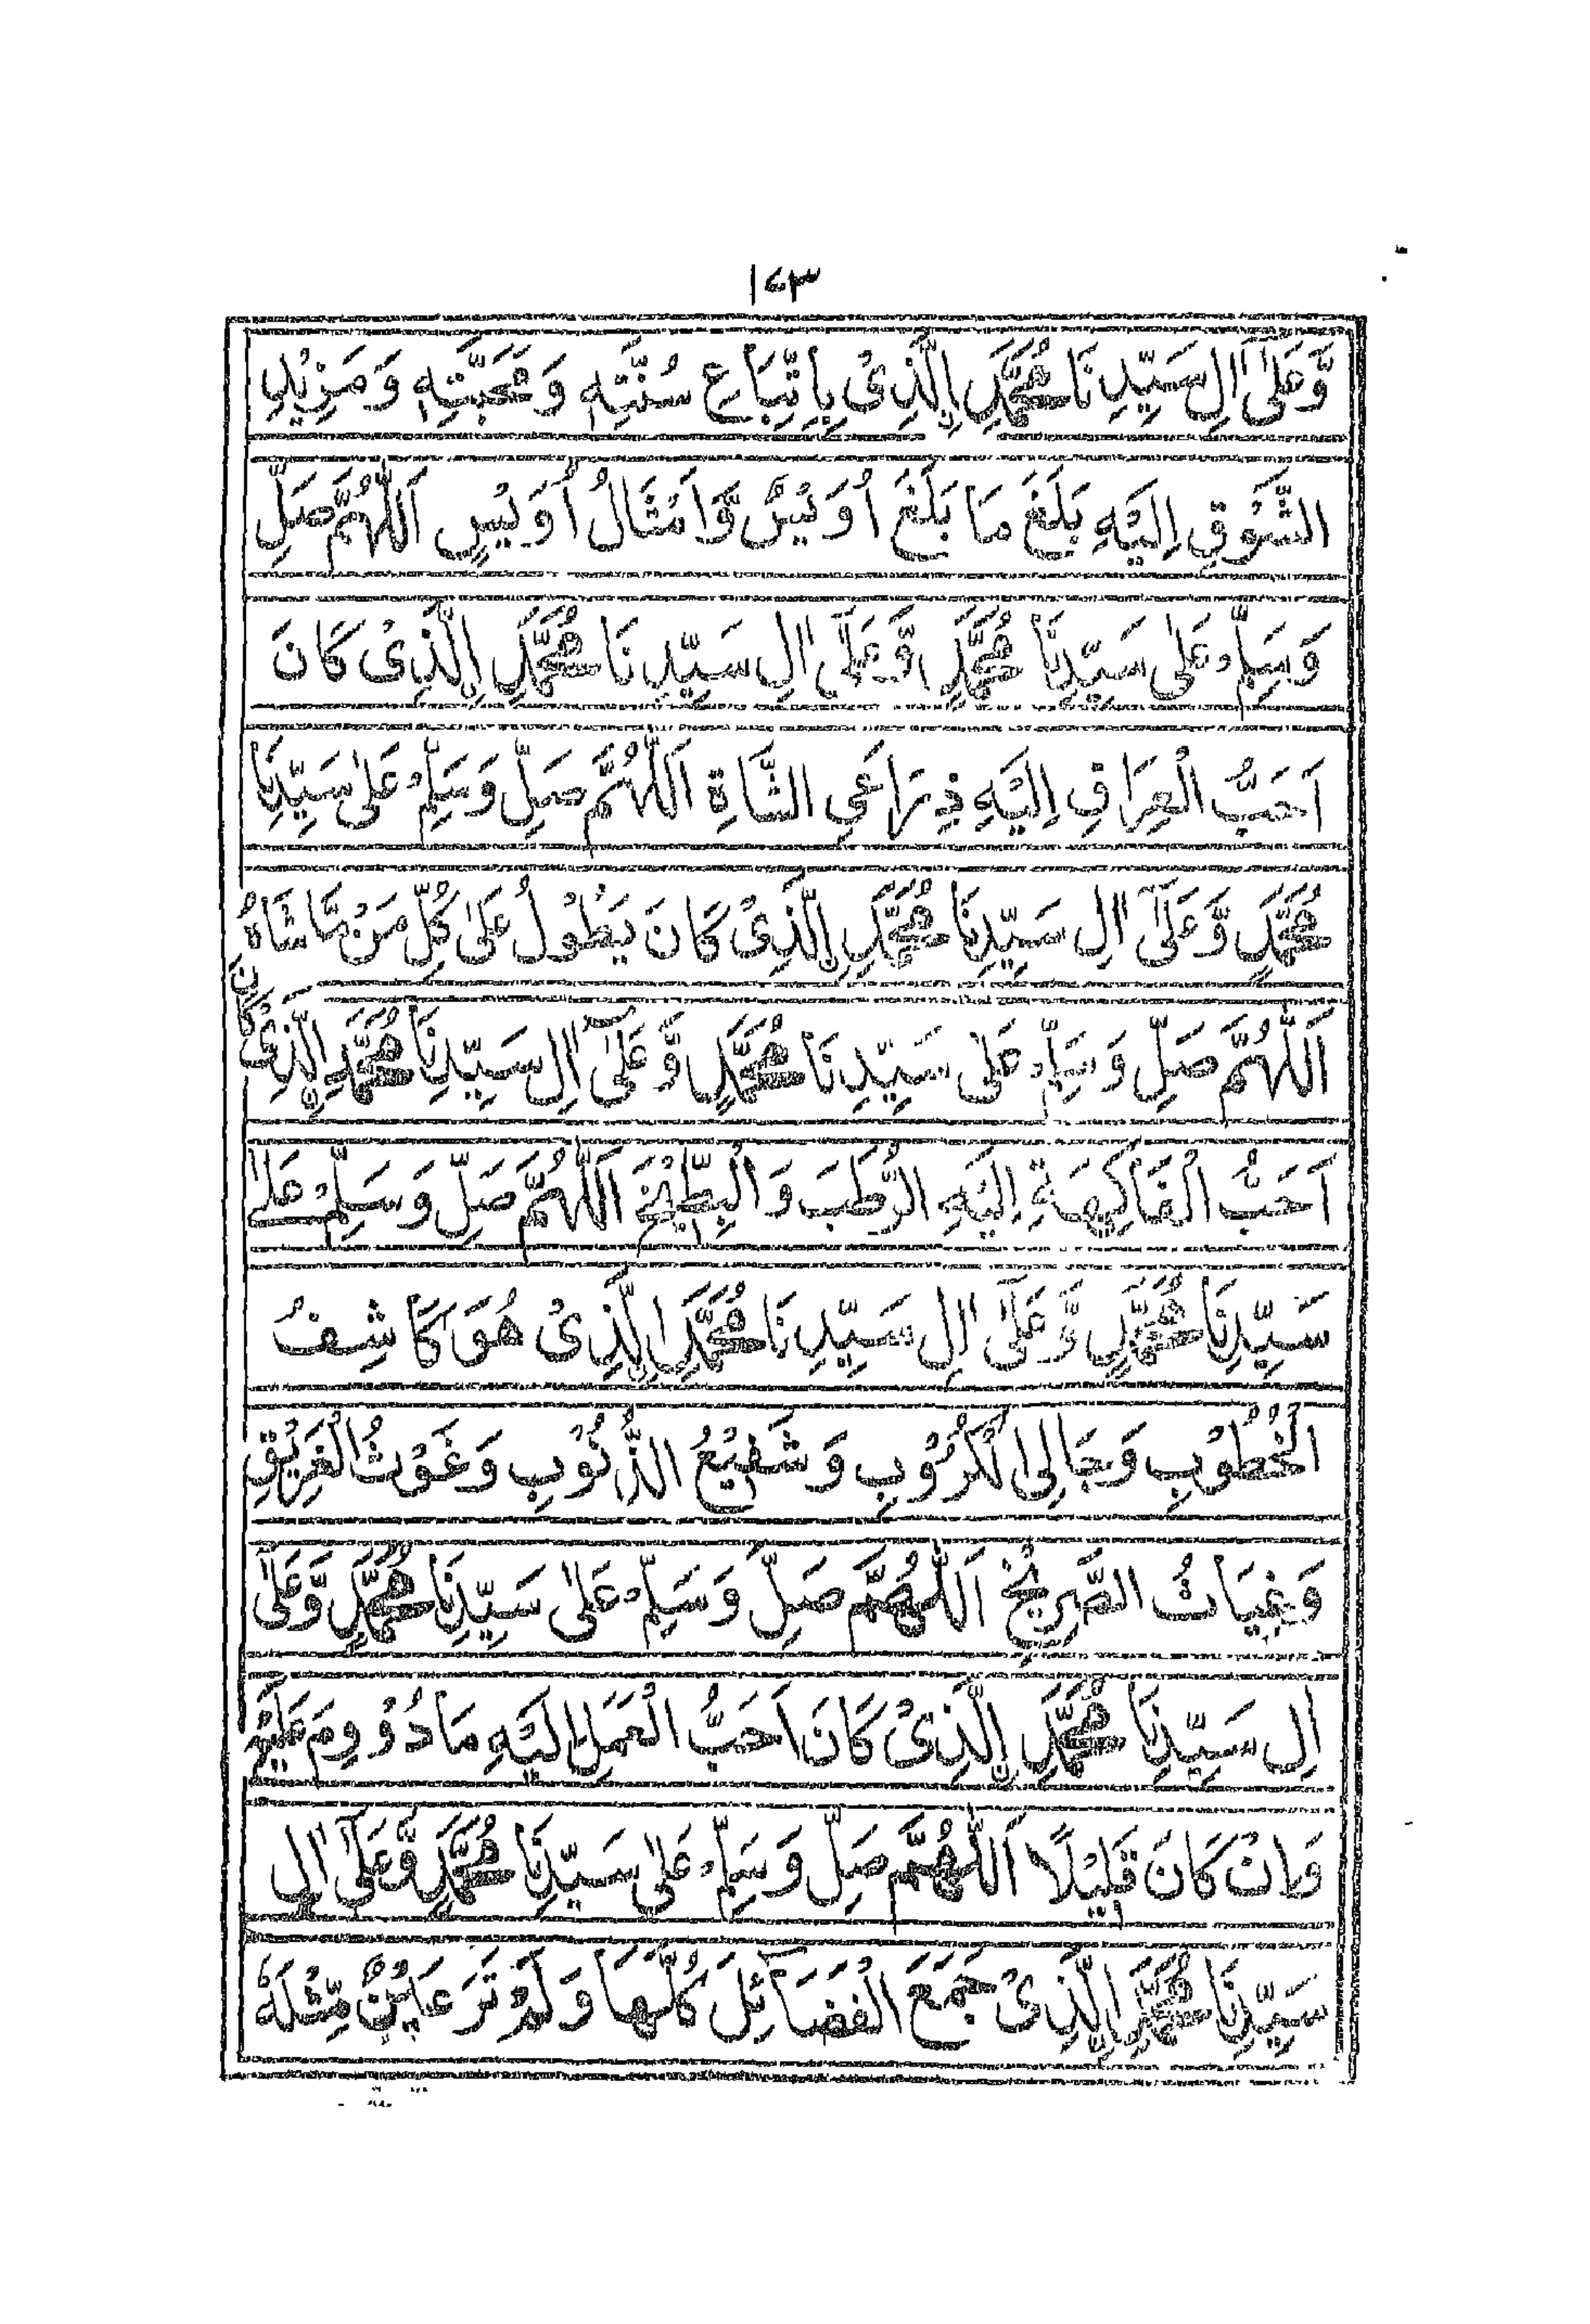 ١٤٣
وَّعَلٰٓى اٰلِ سَيِّدِنَا مُحَمَّدِ ۨالَّذِىْ بِاِتِّبَاعِ سُنَّتِهٖ وَمَحَبَّتِهٖ وَمَزِيْدِ
الشَّوْقِ اِلَيْهِ بَلَغَ مَا بَلَغَ اُوَيْسٌ وَّاَمْثَالُ اُوَيْسٍ اَللّٰهُمَّ صَلِّ
وَسَلِّمْ عَلٰى سَيِّدِنَا مُحَمَّدٍ وَّعَلٰٓى اٰلِ سَيِّدِنَا مُحَمَّدِ ۨالَّذِىْ كَانَ
اَحَبُّ الْعِرَاقِ اِلَيْهِ ذِرَاعَىِ الشَّاةِ اَللّٰهُمَّ صَلِّ وَسَلِّمْ عَلٰى سَيِّدِنَا
مُحَمَّدٍ وَّعَلٰٓى اٰلِ سَيِّدِنَا مُحَمَّدِ ۨالَّذِىْ كَانَ يَطُوْلُ عَلٰى كُلِّ مَنْ مَّاشَاهُ
اَللّٰهُمَّ صَلِّ وَسَلِّمْ عَلٰى سَيِّدِنَا مُحَمَّدٍ وَّعَلٰٓى اٰلِ سَيِّدِنَا مُحَمَّدِ ۨالَّذِىْ كَانَ
اَحَبُّ الْفَاكِهَةِ اِلَيْهِ الرُّطَبَ وَالْبِطِّيْخَ اَللّٰهُمَّ صَلِّ وَسَلِّمْ عَلٰى
سَيِّدِنَا مُحَمَّدٍ وَّعَلٰٓى اٰلِ سَيِّدِنَا مُحَمَّدِ ۨالَّذِىْ هُوَ كَاشِفُ
الْخُطُوْبِ وَجَالِى الْكُرُوْبِ وَشَفِيْعُ الذُّنُوْبِ وَغَوْثُ الْغَرِيْقِ
وَغِيَاثُ الصَّرِيْخِ اَللّٰهُمَّ صَلِّ وَسَلِّمْ عَلٰى سَيِّدِنَا مُحَمَّدٍ وَّعَلٰٓى
اٰلِ سَيِّدِنَا مُحَمَّدِ ۨالَّذِىْ كَانَ اَحَبُّ الْعَمَلِ اِلَيْهِ مَا دُوْوِمَ عَلَيْهِ
وَاِنْ كَانَ قَلِيْلًا اَللّٰهُمَّ صَلِّ وَسَلِّمْ عَلٰى سَيِّدِنَا مُحَمَّدٍ وَّعَلٰٓى اٰلِ
سَيِّدِنَا مُحَمَّدِ ۨالَّذِىْ جَمَعَ الْفَضَآئِلَ كُلَّهَا وَلَمْ تَرَ عَيْنٌ مِّثْلَهٗ